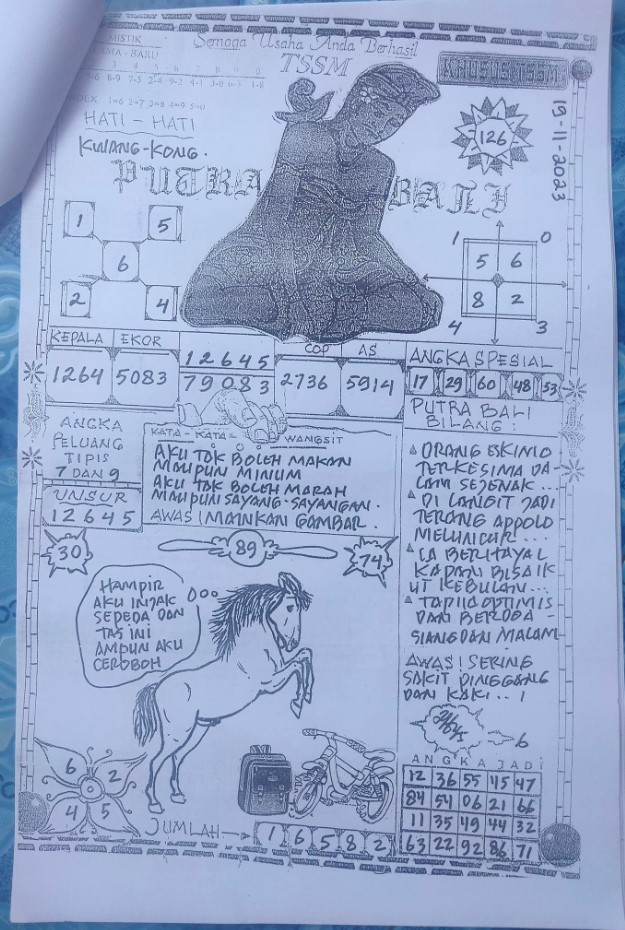 MISTIK
Semoga Usaha Anda Berhasil
TSSM
KHUSUS TSSM
HATI - HATI
KUCANG-KONG.
PUTRA BALI
126
19-11-2023
1 5
6
2 4
1 0
5 6
8 2
4 3
KEPALA EKOR
1264 5083
12645
79083
COP AS
2736 5914
ANGKA SPESIAL
17 29 60 48 53
ANGKA
PELUANG
TIPIS
7 DAN 9
UNSUR
12645
KATA - KATA WANGSIT
AKU TAK BOLEH MAKAN
MAUPUN MINUM
AKU TAK BOLEH MARAH
MAUPUN SAYANG-SAYANGAN.
AWAS! MAINKAN GAMBAR.
PUTRA BALI
BILANG:
ORANG ESKIMO
TERKESIMA DA-
LAM SEJENAK...
DI LANGIT JADI
TERANG APPOLO
MELUNCUR...
IA BERHAYAL
KAPAN BISA IK
UT KEBULAN...
TAPI IA OPTIMIS
DAN BERDOA -
SIANG DAN MALAM
AWAS! SERING
SAKIT PINGGANG
DAN KAKI..!
6
30
89
74
HAMPIR
AKU INJAK
SEPEDA DAN
TAS INI
AMPUN AKU
CEROBOH
6 2
4 5
JUMLAH
1 6 5 8 2
ANGKA JADI
12 36 55 45 47
84 54 06 21 66
11 35 49 44 32
63 22 92 86 71